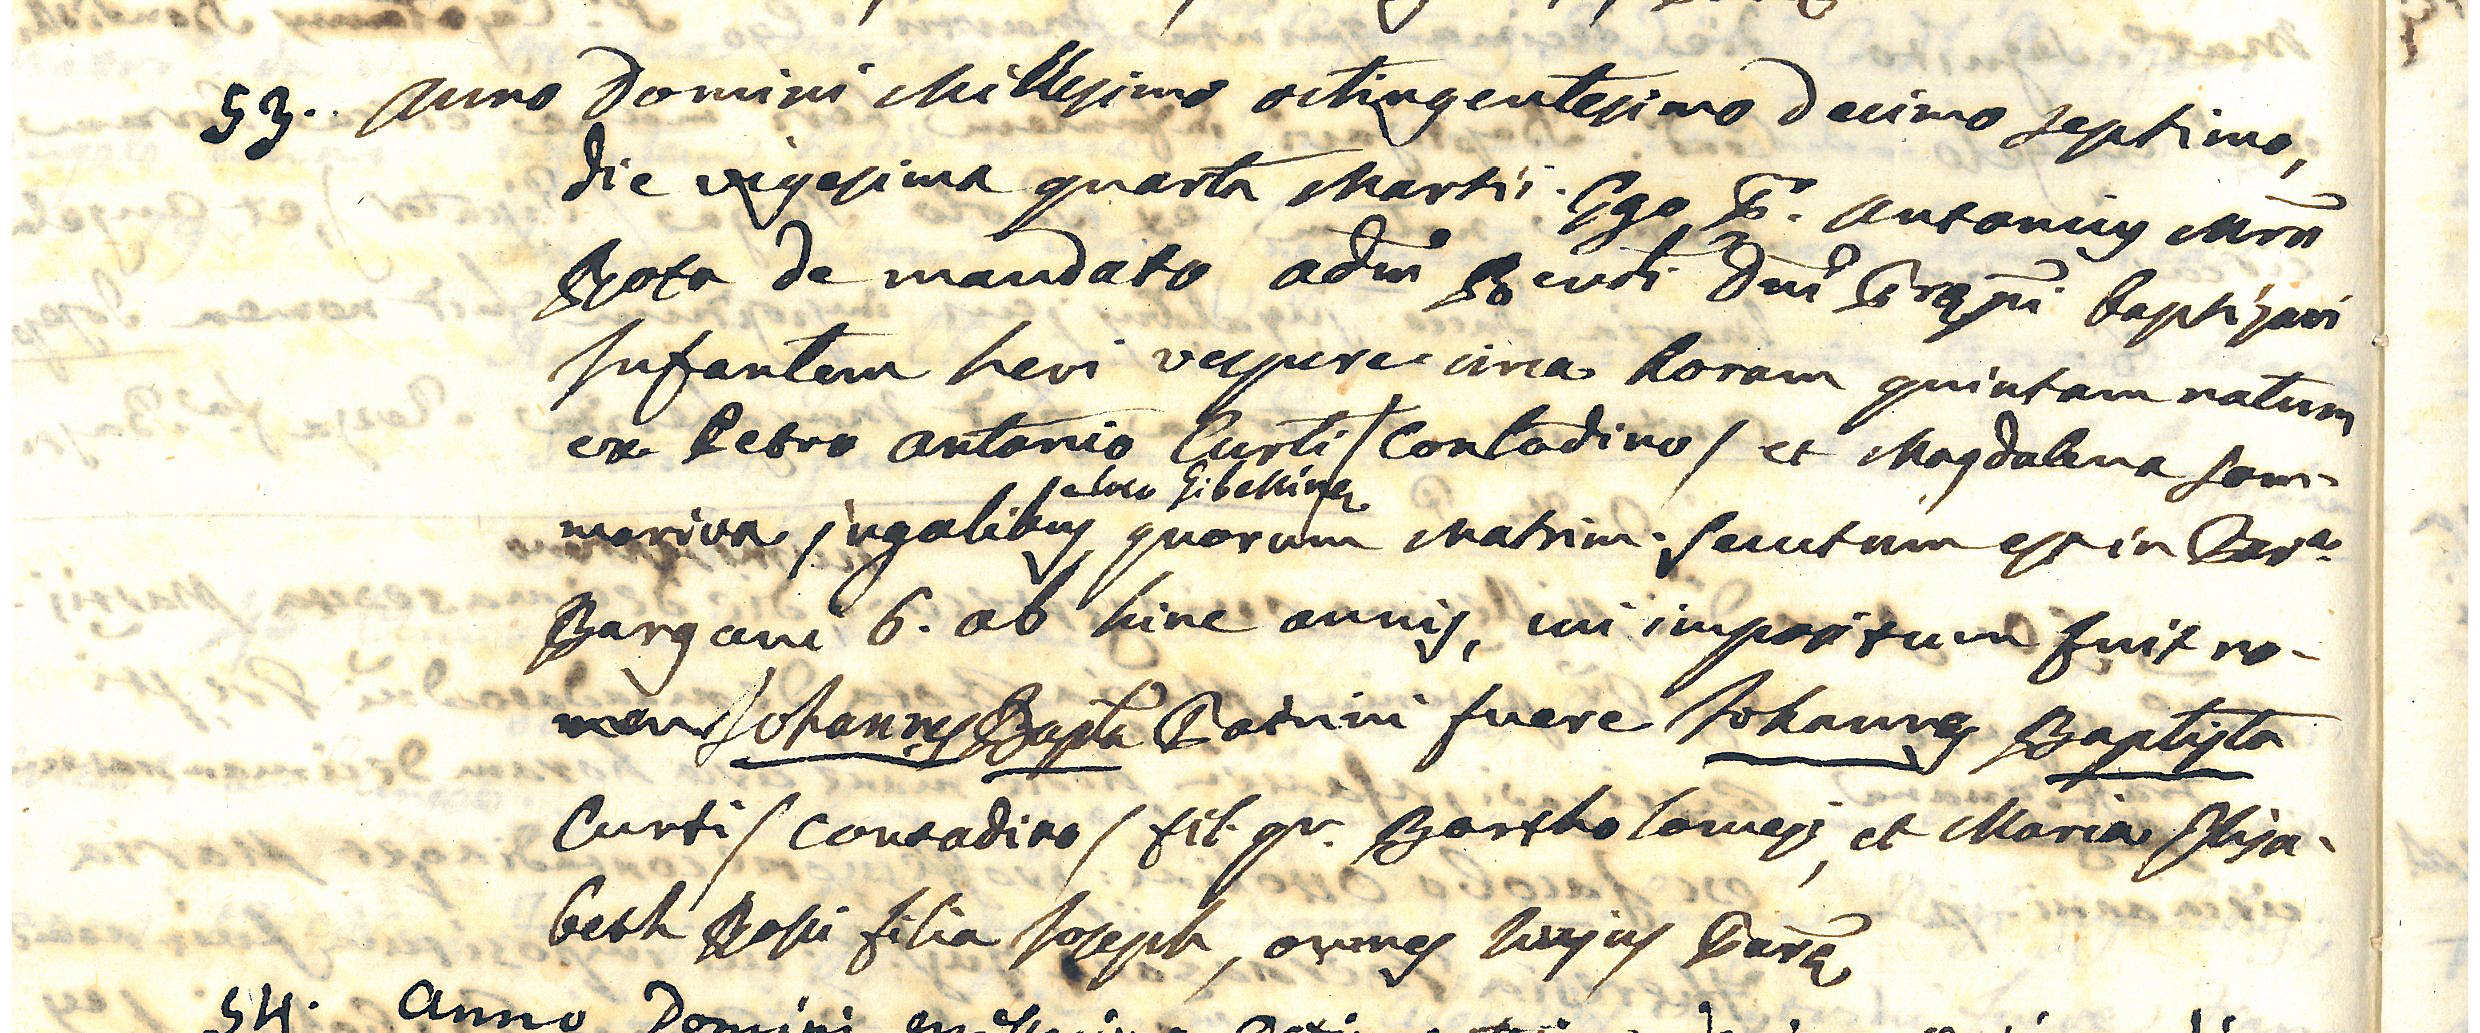 53. Anno Domini Millesimo octingentesimo decimo septimo,
die vigesima quarta Martii. Ego P. Antonius Mrã
Rota de mandato adm Rendi Dni Prapti baptizavi
Infantem heri vespere circa horam quintam natum
ex Petro Antonio Curti / Contadino / et Magdalena Som-
seu Gibellina
mariva jugalibus quorum Matrim. secutum est in Par.
Bargani 6. ab hinc annis, cui impositum fuit no-
men Johannes Bapta Patrini fuere Johannes Baptista
Curti / Contadino / fil. qr. Bartholomeji, et Maria Elisa-
beth Rossi filia Joseph, omnes hujus Paræ
54. Anno Domini